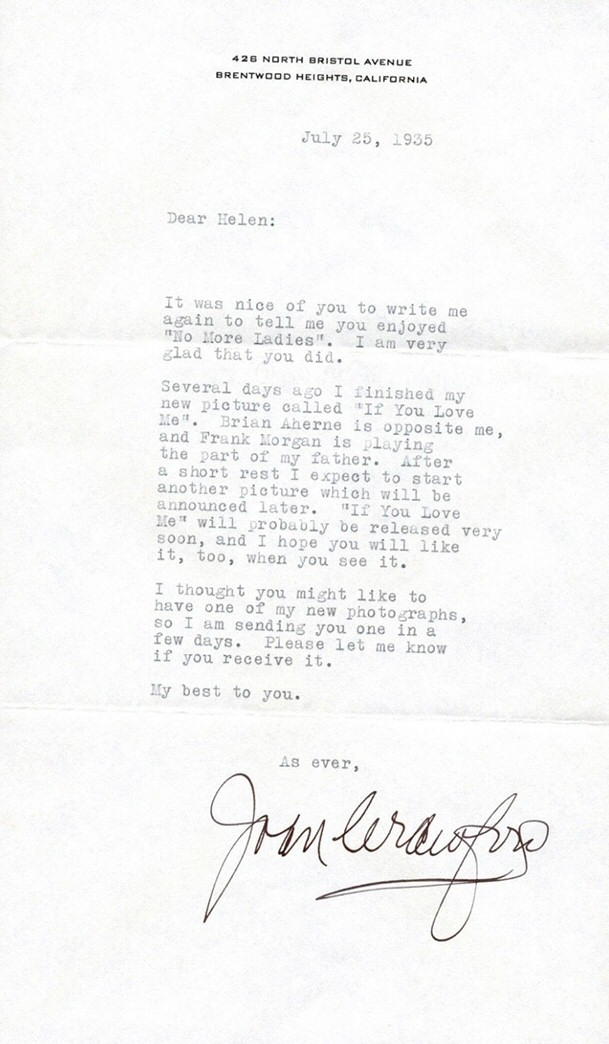 426 NORTH BRISTOL AVENUE
BRENTWOOD HEIGHTS, CALIFORNIA
July 25, 1935
Dear Helen:
It was nice of you to write me
again to tell me you enjoyed
"No More Ladies".  I am very
glad that you did.
Several days ago I finished my
new picture called "If You Love
Me".  Brian Aherne is opposite me,
and Frank Morgan is playing
the part of my father.  After
a short rest I expect to start
another picture which will be
announced later.  "If You Love
Me" will probably be released very
soon, and I hope you will like
it, too, when you see it.
I thought you might like to
have one of my new photographs,
so I am sending you one in a
few days.  Please let me know
if you receive it.
My best to you.
As ever,
Joan Crawford